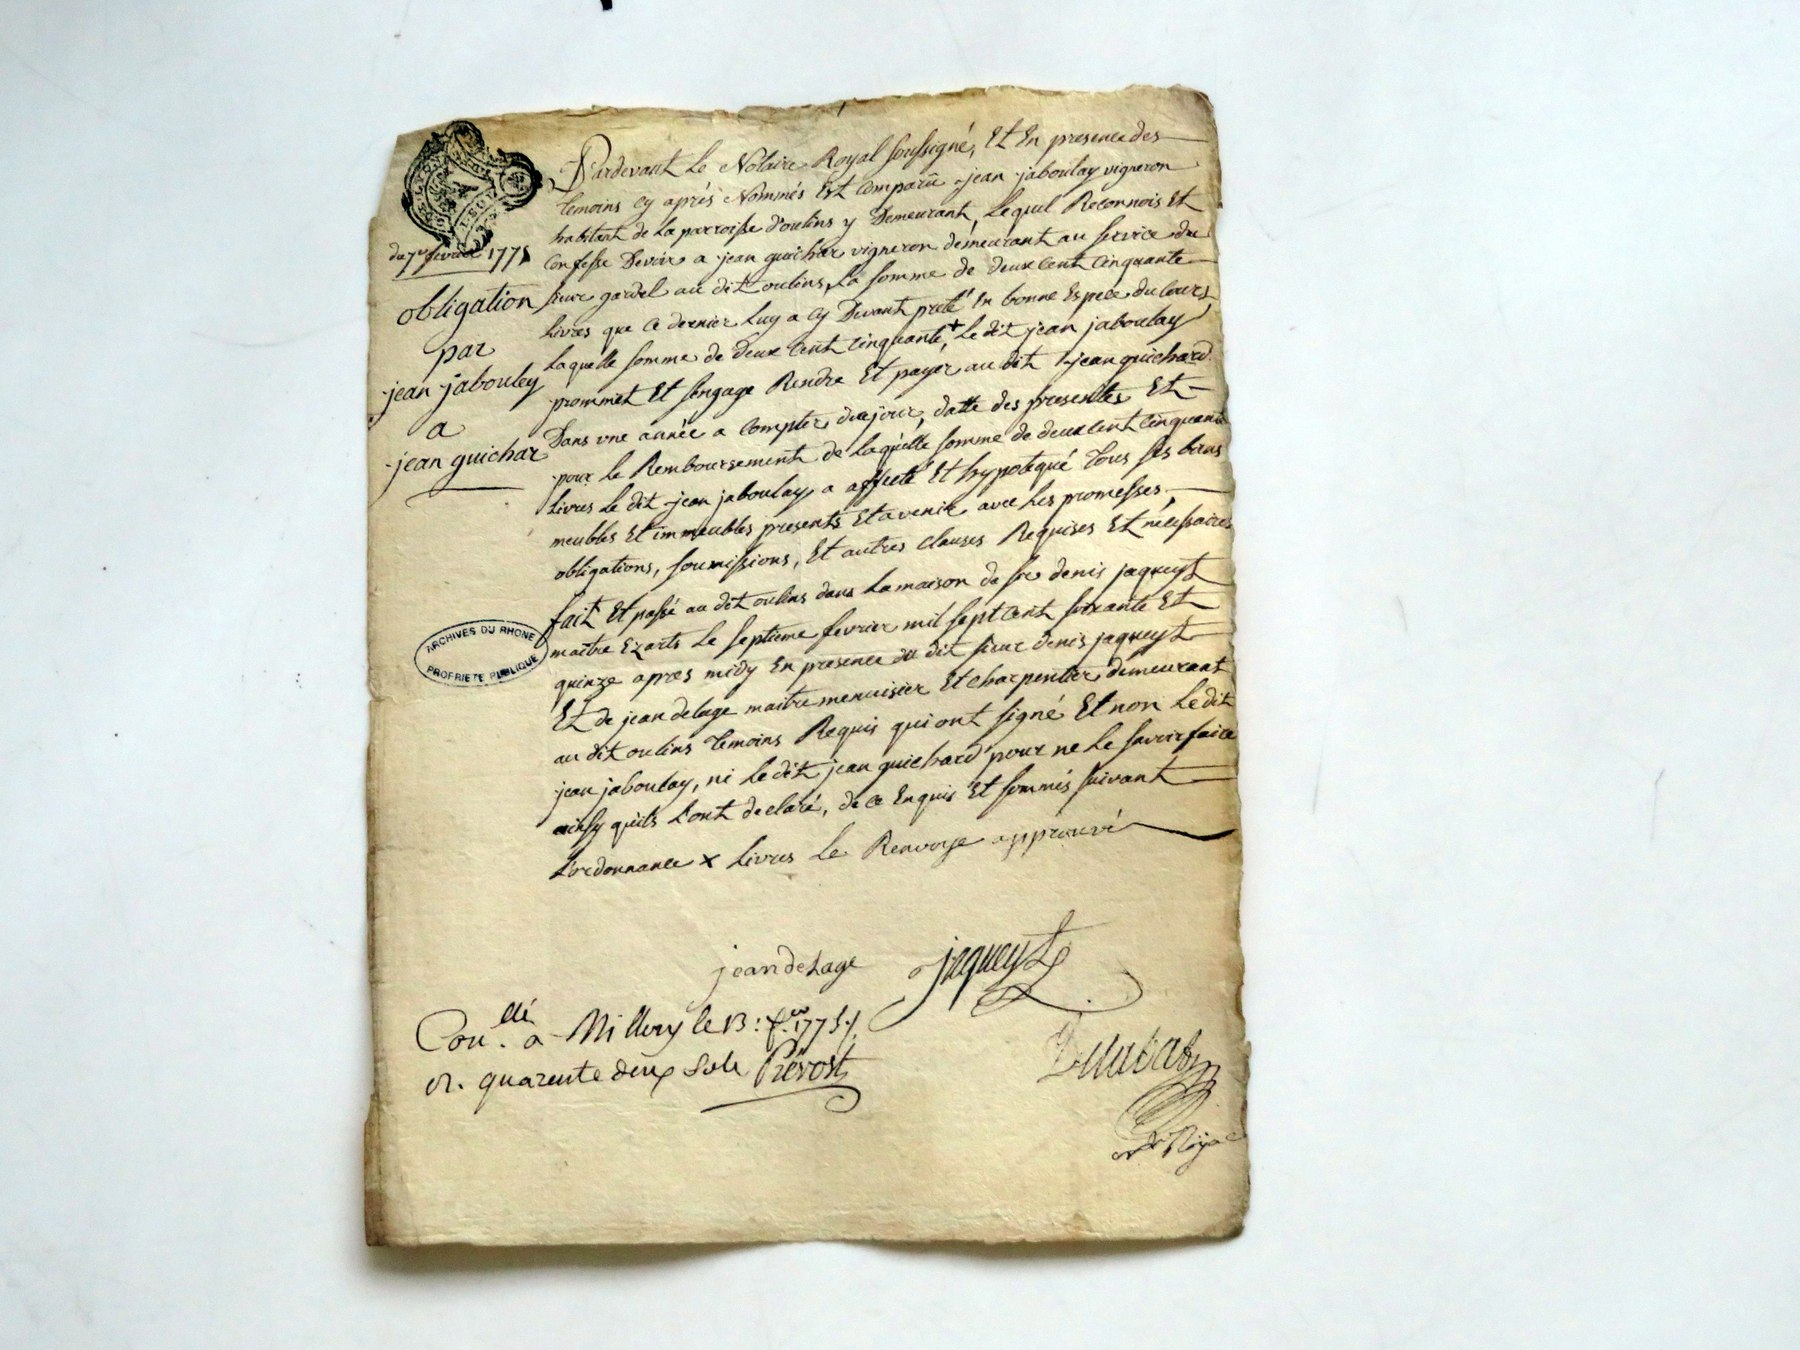 du 7e fevrier 1775
obligation
par
jean jabouley
a
jean guichar
Pardevant le Notaire Royal soussigné, Et En presence des
temoins cy aprés Nommés Est comparû jean jaboulay vigneron
habitant de la parroisse d'oulins y Demeurant, Lequel Reconnois Et
confesse Devoir a jean guichar vigneron demeurant au service du
sieur gardel au dit oulins, La somme de deux cent cinquante
Livres que ce dernier Luy a cy Devant preté En bonne Espece du cours,
Laquelle somme de deux cent cinquante + Le dit jean jaboulay
prommet Et sengage Rendre Et payer au dit jean guichard
Dans une année a compter du jour, datte des presentes Et
pour le Remboursement de Laquelle somme de deux cent cinquante
Livres Le dit jean jaboulay a affecté Et hypotequé Tous ses biens
meubles Et immeubles presents Et avenir avec Les promesses,
obligations, soumissions, Et autres clauses Requises Et nécéssaires
fait Et passé au dit oulins dans La maison de sr denis jaqueyt
maitre Ez arts Le septieme fevrier mil sept cent soixante Et
quinze apres midy En presence du dit sieur denis jaqueyt
Et de jean delage maitre menuisier Et charpentier demeurant
au dit oulins temoins Requis qui ont signé Et non Le dit
jean jaboulay, ni Le dit jean guichard pour ne Le savoir faire
ainsy quils L'ont declaré, de ce Enquis Et sommés suivant
L'ordonnance x Livres Le Renvoye approuvé
ARCHIVES DU RHONE
PROPRIETE PUBLIQUE
jean deLage jaqueyt
Con.llé a Millery le 13: fer 1775./.
R. quarente deux sols Prévost
nre Royal